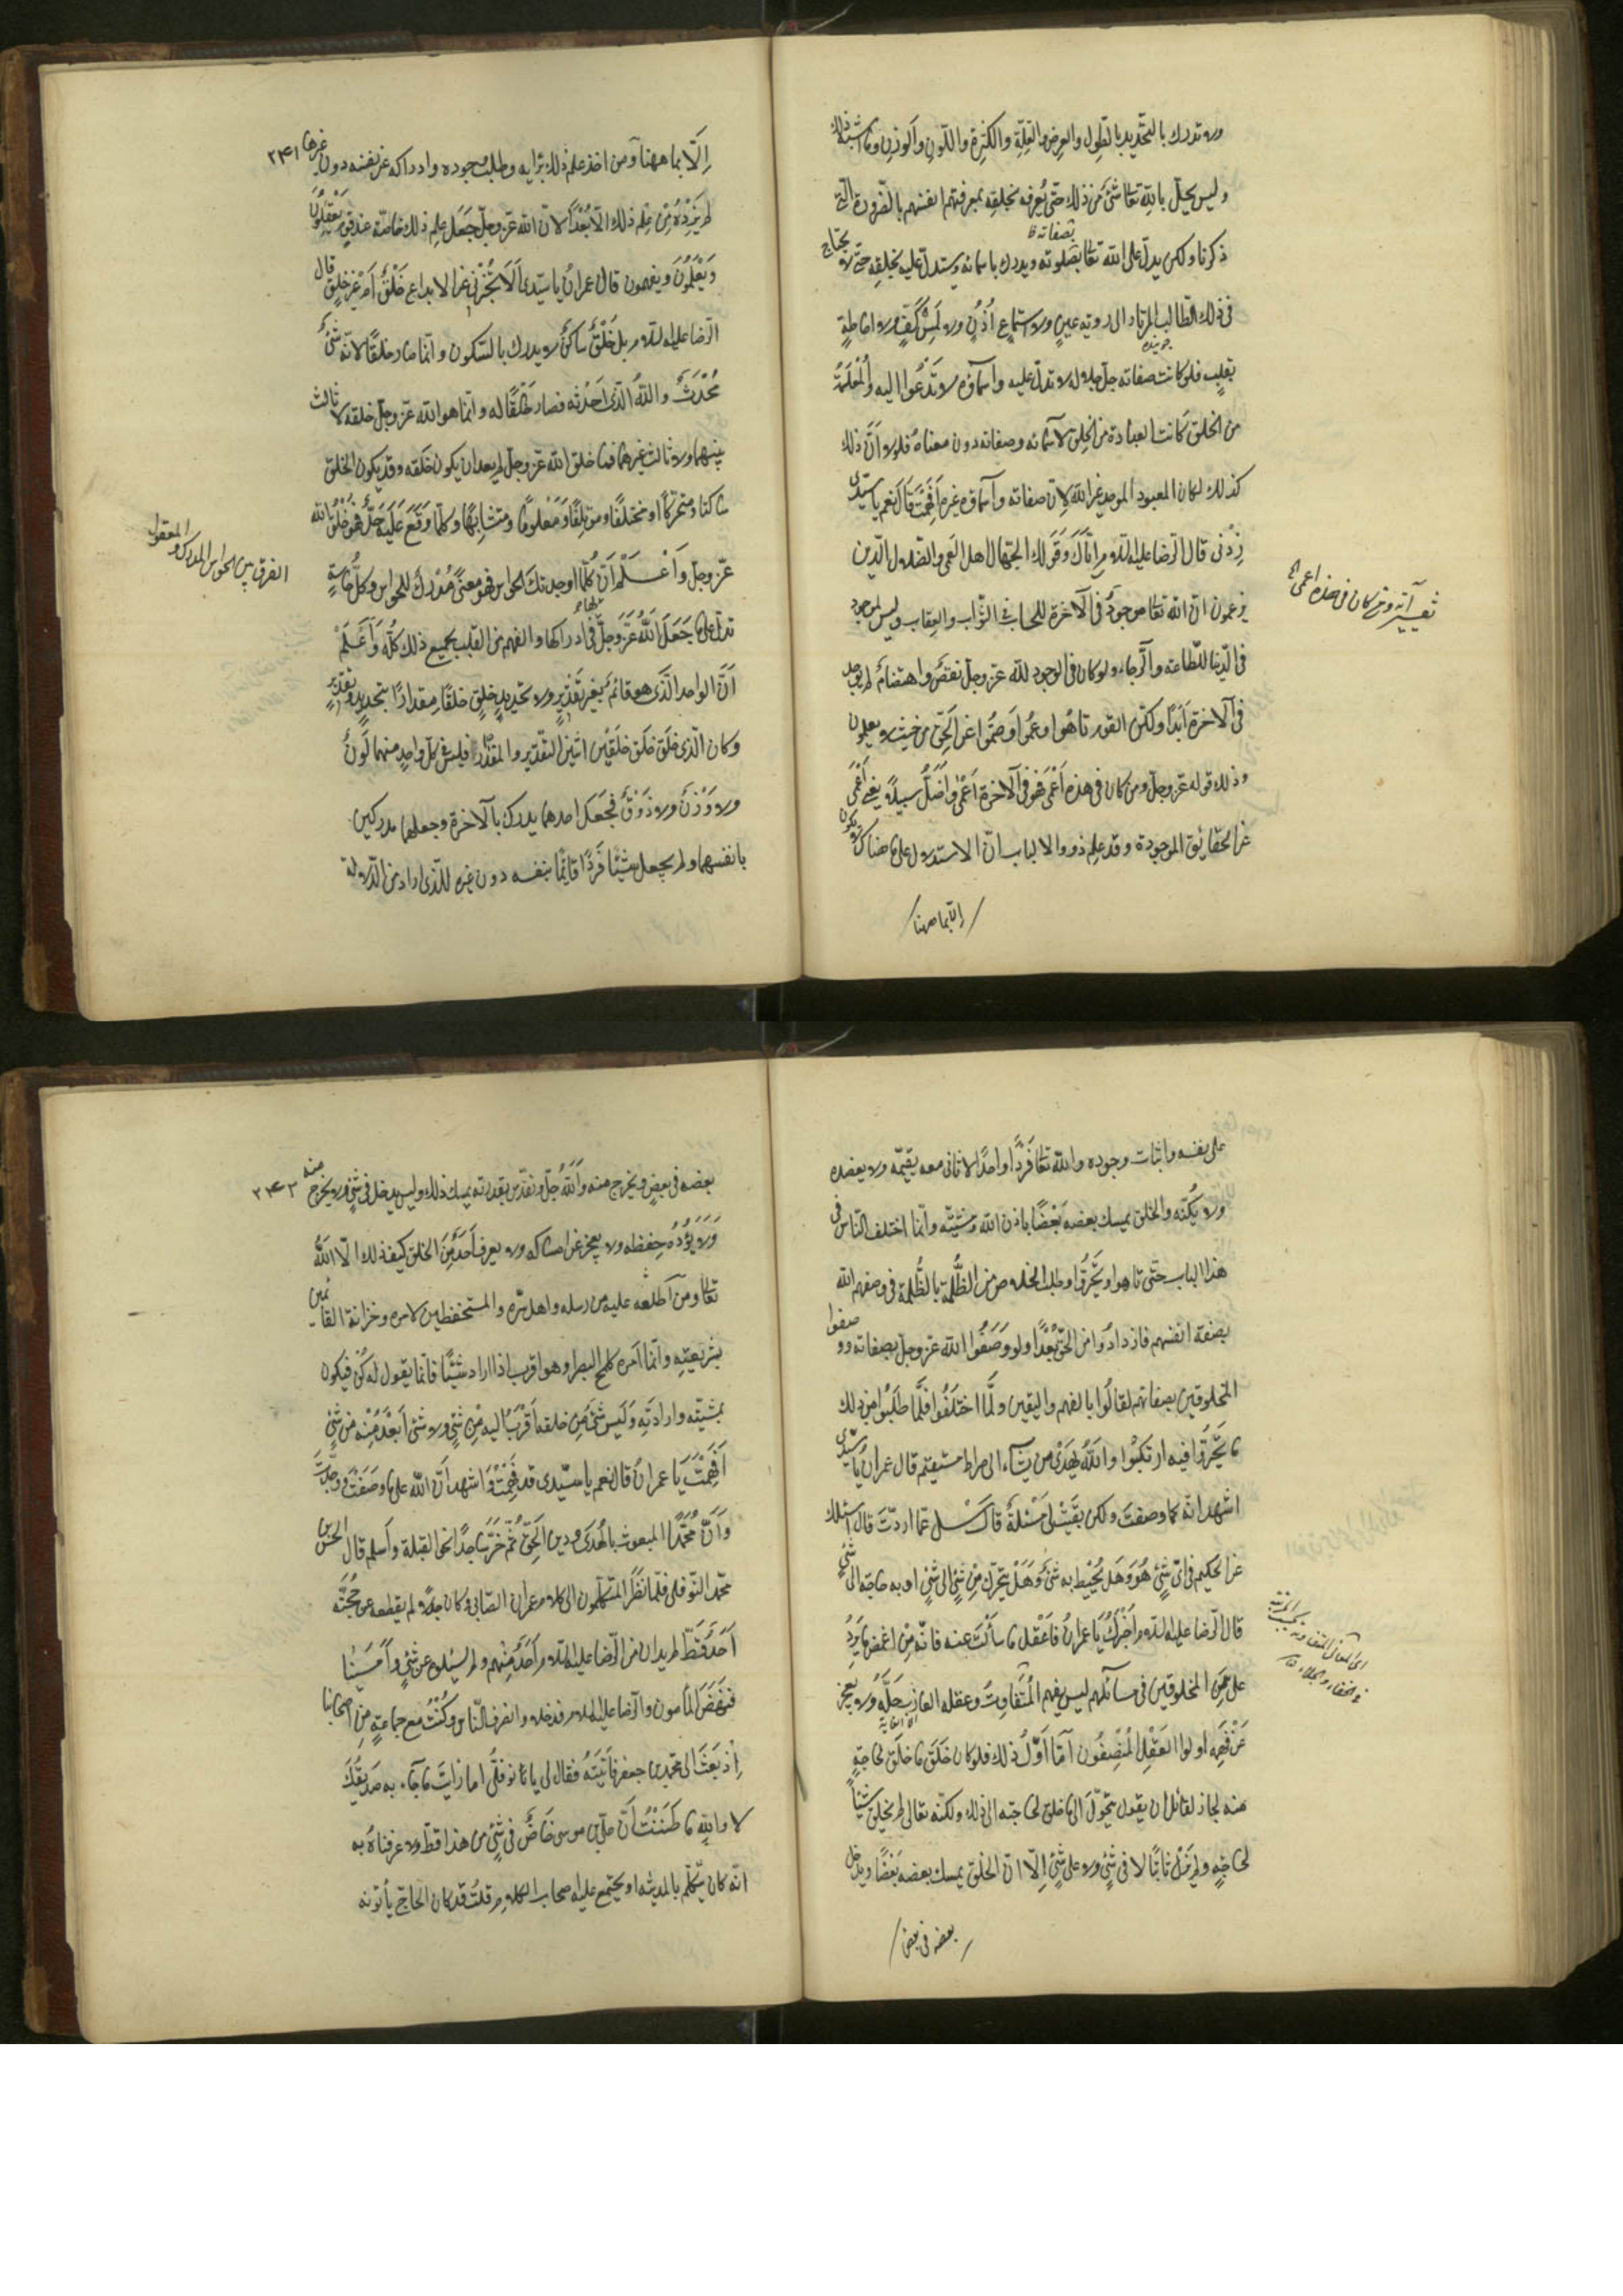 ولا تدرك بالتحديد بالطول والعرض والقلة والكثرة واللون والوزن وما اشبه ذلك
وليس يحل بالله تعا شئ من ذلك حتى يعرفه بخلقه بمعرفتهم انفسهم بالضرورة التى
ذكرنا ولكن يدل على الله تعا بصفاته ويدرك باسمائه ويستدل عليه بخلقه حتى لا يحتاج
فى ذلك الطالب المرتاد الى روية عين ولا استماع اذن ولا لمس كف ولا احاطة
جوينده
بقلب فلو كانت صفاته جل جلاله لا تدل عليه واسماؤه لا تدعوا اليه والمعلمة
من الخلق كانت العبادة من الخلق لاسمائه وصفاته دون معناه فلولا ان ذلك
كذلك لكان المعبود الموحد غير الله لان صفاته واسماؤه غيره أفهمت قال نعم يا سيدى
زدنى قال الرضا عليه السلام اياك وقول الجهال اهل العمى والضلال الذين
يزعمون ان الله تعا موجود فى الآخرة للحساب فى الثواب والعقاب وليس بموجود
فى الدنيا للطاعة والرجاء ولو كان فى الوجود لله عز وجل نقص واهتضام لم يوجد
فى الآخرة ابدا ولكن القوم تاهوا وعموا وصموا عن الحق من حيث لا يعلمون
وذلك قوله عز وجل ومن كان فى هذه أعمى فهو فى الآخرة أعمى وأضل سبيلا يعنى أعمى
عن الحقائق الموجودة وقد علم ذووا الالباب ان الاستدلال على ما هناك لا يكون
الا بما ههنا
تفسير آية ومن كان فى هذه اعمى
۲۴۱
إلا بما ههنا ومن اخذ علم ذلك برايه وطلب وجوده وادراكه عن نفسه دون غيرها
لم يزده من علم ذلك الا بعدا لان الله عز وجل جعل علم ذلك خاصة عند قوم يعقلون
ويعلمون ويفهمون قال عمران يا سيدى ألا تخبرنى عن الابداع خلق أم غير خلق قال
الرضا عليه السلام بل خلق ساكن لا يدرك بالسكون وانما صار خلقا لانه شئ
محدث والله الذى احدثه فصار خلقا له وانما هو الله عز وجل خلقه لا ثالث
بينهما ولا ثالث غيرهما فما خلق الله عز وجل لم يعد ان يكون خلقه وقد يكون الخلق
ساكنا ومتحركا ومختلفا ومؤتلفا ومعلوما ومتشابها وكلما وقع عليه حد فهو خلق الله
عز وجل وأعلم أن كلما اوجدتك الحواس فهو معنى مدرك للحواس وكل حاسة
تدل على ما جعل الله عز وجل لها فى ادراكها والفهم من القلب بجميع ذلك كله وأعلم
أن الواحد الذى هو قائم بغير تقدير ولا تحديد خلق خلقا مقدرا بتحديد وتقدير
وكان الذى خلق خلقين اثنين التقدير والمقدر فليس فى كل واحد منهما لون
ولا وزن ولا ذوق فجعل احدهما يدرك بالآخرة وجعلهما مدركين
بانفسهما ولم يجعل شيئا فردا قائما بنفسه دون غيره للذى اراد من الدلالة
الفرق بين الحواس المدرك والمعقول
على نفسه واثبات وجوده والله تعا فردا واحدا لا ثانى معه يقيمه ولا يعضده
ولا يكنه والخلق يمسك بعضه بعضا باذن الله ومشيته وانما اختلف الناس فى
هذا الباب حتى تاهوا وتحيروا وطلبوا الخلاص من الظلمة بالظلمة فى وصفهم الله
بصفة انفسهم فازدادوا من الحق بعدا ولو وصفوا الله عز وجل بصفاته ووصفوا
المخلوقين بصفاتهم لقالوا بالفهم واليقين ولما اختلفوا فلما طلبوا من ذلك
ما تحيروا فيه ارتبكوا والله يهدى من يشاء الى صراط مستقيم قال عمران يا سيدى
اشهد انه كما وصفت ولكن بقيت لى مسئلة قال سل عما اردت قال اسئلك
عن الحكيم فى اى شئ هو وهل يحيط به شئ وهل يتحرك من شئ الى شئ او به حاجة الى شئ
قال الرضا عليه السلام أخبرك يا عمران فاعقل ما سألت عنه فانه من اغمض ما يرد
على المخلوقين فى مسائلهم ليس يفهم المتفاوت عقله العازب حلمه ولا يعجز
عن فهمه اولوا العقل المنصفون أما أول ذلك فلو كان خلق ما خلق لحاجة
منه لجاز لقائل ان يقول يتحول الى ما خلق لحاجته الى ذلك ولكنه تعالى لم يخلق شيئا
لحاجة ولم يزل ثابتا لا فى شئ ولا على شئ إلا ان الخلق يمسك بعضه بعضا ويدخل
بعضه فى بعض
۲۴۳
بعضه فى بعض ويخرج منه والله جل وتقدس بقدرته يمسك ذلك وليس يدخل فى شئ ولا يخرج منه
ولا يؤده حفظه ولا يعجز عن امساكه ولا يعرف أحد من الخلق كيف ذلك الا الله
تعا ومن أطلعه عليه من رسله واهل سره والمستحفظين لامره وخزانه القائمين
بشريعته وانما امره كلمح البصر او هو اقرب اذا اراد شيئا فانما يقول له كن فيكون
بمشيته وارادته وليس شئ من خلقه أقرب اليه من شئ ولا شئ أبعد منه من شئ
أفهمت يا عمران قال نعم يا سيدى قد فهمت واشهد أن الله على ما وصفت ووحدت
وأن محمدا المبعوث بالهدى ودين الحق ثم خر ساجدا نحو القبلة وأسلم قال الحسن
محمد النوفلى فلما نظر المتكلمون الى كلام عمران الصابى وكان جدلا لم يقطعه عن حجته
أحد قط لم يدن من الرضا عليه السلام أحد منهم ولم يسئلوه عن شئ وأمسينا
فنهض المأمون والرضا عليه السلام فدخلا وانصرف الناس وكنت مع جماعة من اصحابنا
إذ بعث الى محمد بن جعفر فأتيته فقال لى يا نوفلى اما رأيت ما جاء به صديقك
لا والله ما ظننت أن على بن موسى خاض فى شئ من هذا قط ولا عرفناه به
انه كان يتكلم بالمدينة او يجتمع عليه اصحاب الكلام قلت قد كان الحاج يأتونه